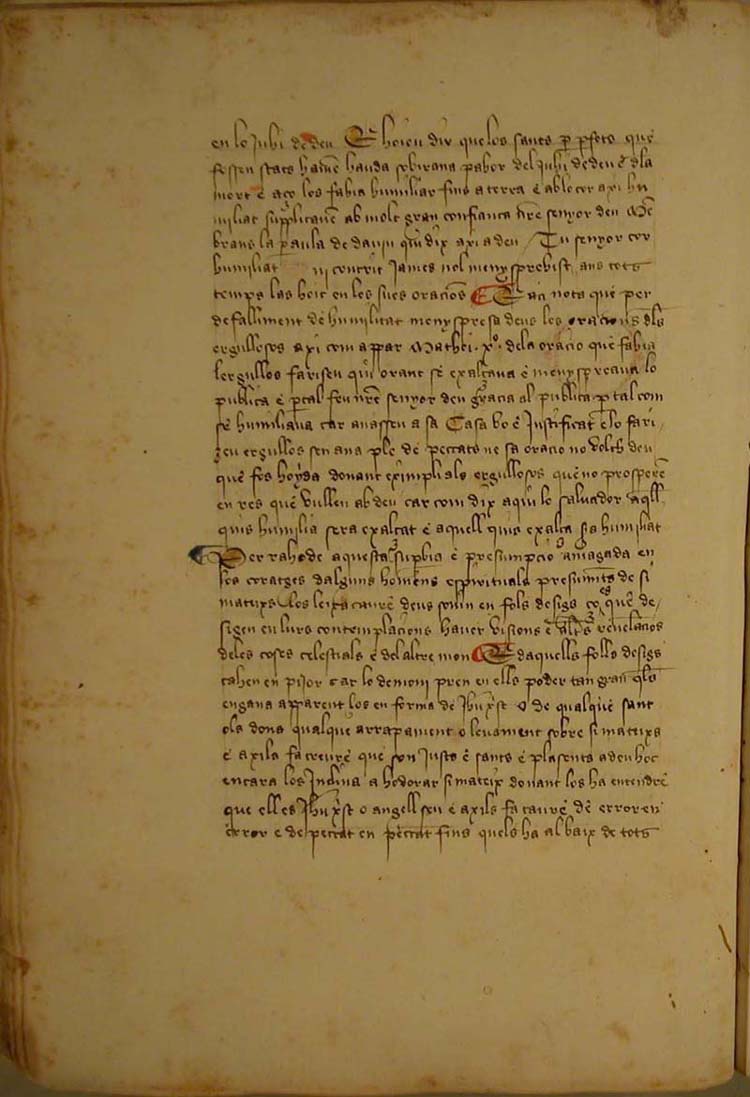 en lo juhi de deu E hoieu dir que los sants per pfets que
fossen stats havie hauda sobirana pahor del juhi de deu e dla
mort e aço los fahia humiliar fins a terra e ab lo cor axi hu
miliat supplicave ab molt gran confiança nre senyor deu
brans la paraula de daviu qui dix axi a deu Tu senyor cor
humiliat ni contrit james nol menysprehist ans tots
temps las hoit en les sues oracions E aci nota que per
defalliment de humilitat menyspresa deus les oracions dls
ergulloses axi com appar Mathei .xº. de la oracio que fahia
lergullos fariseu qui orant se exalçava e menyspreava lo
publica e p tal feu nre senyor deu gracia al publica p tal com
se humiliava car anassen a sa Casa bo e justificat e lo fari
zeu ergullos sen ana ple de peccats ne sa oracio no volch deu
que fos hoyda donant eximpli als ergulloses que no prospere
en res que vullen ab deu car com dix aqui lo salvador aqll
quis humilia sera exalçat e aquell quis exalça sia humiliat
Per raho de aquesta supbia e presumpcio amagada en
los coratges dalguns homens espirituals presumits de si
mateyxs los leixa caure deus sovin en fols desigs co es que de
sigen en lurs contemplacions haver visions e altes revelacios
deles coses celestials e del altre mon E daquells folls desigs
cahen en pijor car lo demoni pren en ells poder tan gran qls
engana apparent los en forma de Jhu xst o de qualque sant
ols dona qualque arrapament o levament sobre si mateixs
e axils fa creure que son justs e sants e plasents a deu hoc
encara los Indina a hodorar si mateix donant los ha entendre
que ell es Jhu xst o angell seu e axils fa caure de error en
error e de peccat en peccat fins quels ha al baix de tots